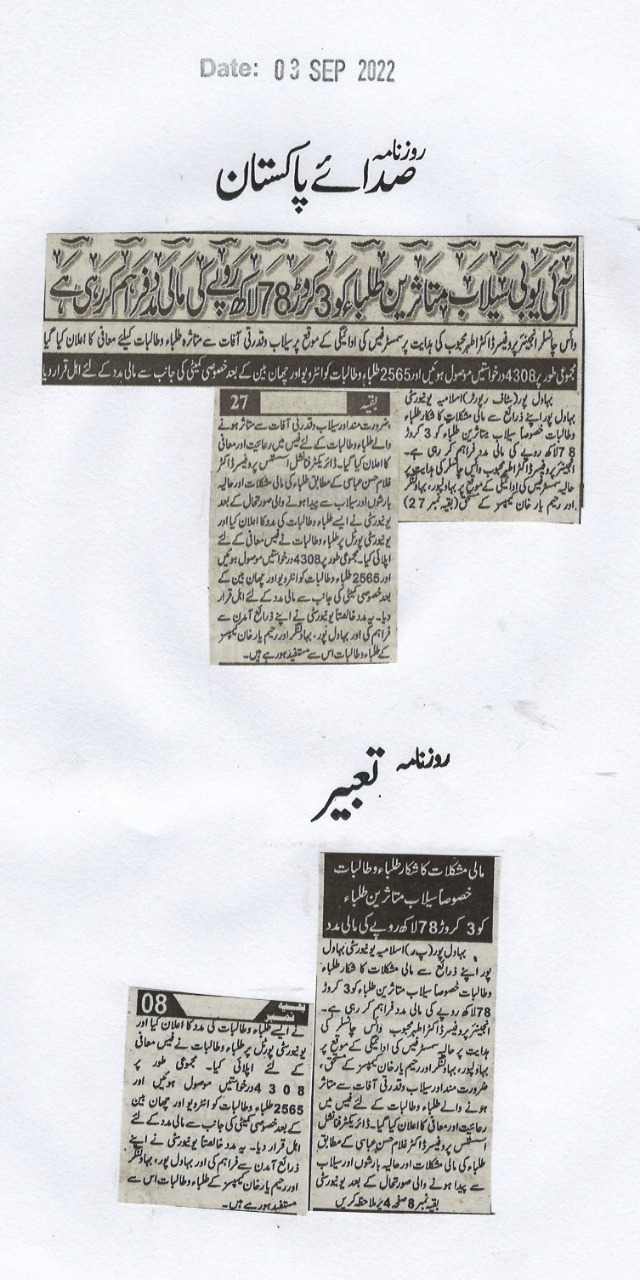 Date: 03 SEP 2022
روزنامہ
صدائے پاکستان
آئی یو بی سیلاب متاثرین طلباء کو 3 کروڑ 78 لاکھ روپے کی مالی مدد فراہم کر رہی ہے
وائس چانسلر انجینئر پروفیسر ڈاکٹر اطہر محبوب کی ہدایت پر سمسٹر فیس کی ادائیگی کے موقع پر سیلاب وقدرتی آفات سے متاثرہ طلباء وطالبات کیلئے معافی کا اعلان کیا گیا
مجموعی طور پر 4308 درخواستیں موصول ہوئیں اور 2565 طلباء وطالبات کو انٹرویو اور چھان بین کے بعد خصوصی کمیٹی کی جانب سے مالی مدد کے لئے اہل قرار دیا
بہاول پور (سٹاف رپورٹر) اسلامیہ یونیورسٹی
بہاول پور اپنے ذرائع سے مالی مشکلات کا شکار طلباء
وطالبات خصوصاً سیلاب متاثرین طلباء کو 3 کروڑ
78 لاکھ روپے کی مالی مدد فراہم کر رہی ہے۔
انجینئر پروفیسر ڈاکٹر اطہر محبوب وائس چانسلر کی ہدایت پر
حالیہ سمسٹر فیس کی ادائیگی کے موقع پر بہاولپور، بہاولنگر
اور رحیم یار خان کیمپسز کے مستحق (بقیہ نمبر 27)
بقیہ 27
ضرورت مند اور سیلاب وقدرتی آفات سے متاثر ہونے
والے طلباء وطالبات کے لئے فیس میں رعائیت اور معافی
کا اعلان کیا گیا۔ ڈائریکٹر فنانشل اسسٹنس پروفیسر ڈاکٹر
غلام حسن عباسی کے مطابق طلباء کی مالی مشکلات اور حالیہ
بارشوں اور سیلاب سے پیدا ہونے والی صورتحال کے بعد
یونیورسٹی نے ایسے طلباء وطالبات کی مدد کا اعلان کیا اور
یونیورسٹی پورٹل پر طلباء وطالبات نے فیس معافی کے لئے
اپلائی کیا۔ مجموعی طور پر 4308 درخواستیں موصول ہوئیں
اور 2565 طلباء وطالبات کو انٹرویو اور چھان بین کے
بعد خصوصی کمیٹی کی جانب سے مالی مدد کے لئے اہل قرار
دیا۔ یہ مدد خالصتاً یونیورسٹی نے اپنے ذرائع آمدن سے
فراہم کی اور بہاول پور، بہاولنگر اور رحیم یار خان کیمپسز
کے طلباء وطالبات اس سے مستفید ہورہے ہیں۔
روزنامہ
تعبیر
مالی مشکلات کا شکار طلباء وطالبات
خصوصاً سیلاب متاثرین طلباء
کو 3 کروڑ 78 لاکھ روپے کی مالی مدد
بہاول پور (پ ر) اسلامیہ یونیورسٹی بہاول
پور اپنے ذرائع سے مالی مشکلات کا شکار طلباء
وطالبات خصوصاً سیلاب متاثرین طلباء کو 3 کروڑ
78 لاکھ روپے کی مالی مدد فراہم کر رہی ہے۔
انجینئر پروفیسر ڈاکٹر اطہر محبوب وائس چانسلر کی
ہدایت پر حالیہ سمسٹر فیس کی ادائیگی کے موقع پر
بہاولپور، بہاولنگر اور رحیم یار خان کیمپسز کے مستحق،
ضرورت مند اور سیلاب وقدرتی آفات سے متاثر
ہونے والے طلباء وطالبات کے لئے فیس میں
رعائیت اور معافی کا اعلان کیا گیا۔ ڈائریکٹر فنانشل
اسسٹنس پروفیسر ڈاکٹر غلام حسن عباسی کے مطابق
طلباء کی مالی مشکلات اور حالیہ بارشوں اور سیلاب
سے پیدا ہونے والی صورتحال کے بعد یونیورسٹی
بقیہ نمبر 8 صفحہ 4 پر ملاحظہ کریں
بقیہ نمبر 08
نے ایسے طلباء وطالبات کی مدد کا اعلان کیا اور
یونیورسٹی پورٹل پر طلباء وطالبات نے فیس معافی
کے لئے اپلائی کیا۔ مجموعی طور پر
4308 درخواستیں موصول ہوئیں اور
2565 طلباء وطالبات کو انٹرویو اور چھان بین
کے بعد خصوصی کمیٹی کی جانب سے مالی مدد کے لئے
اہل قرار دیا۔ یہ مدد خالصتاً یونیورسٹی نے اپنے
ذرائع آمدن سے فراہم کی اور بہاول پور، بہاولنگر
اور رحیم یار خان کیمپسز کے طلباء وطالبات اس سے
مستفید ہورہے ہیں۔